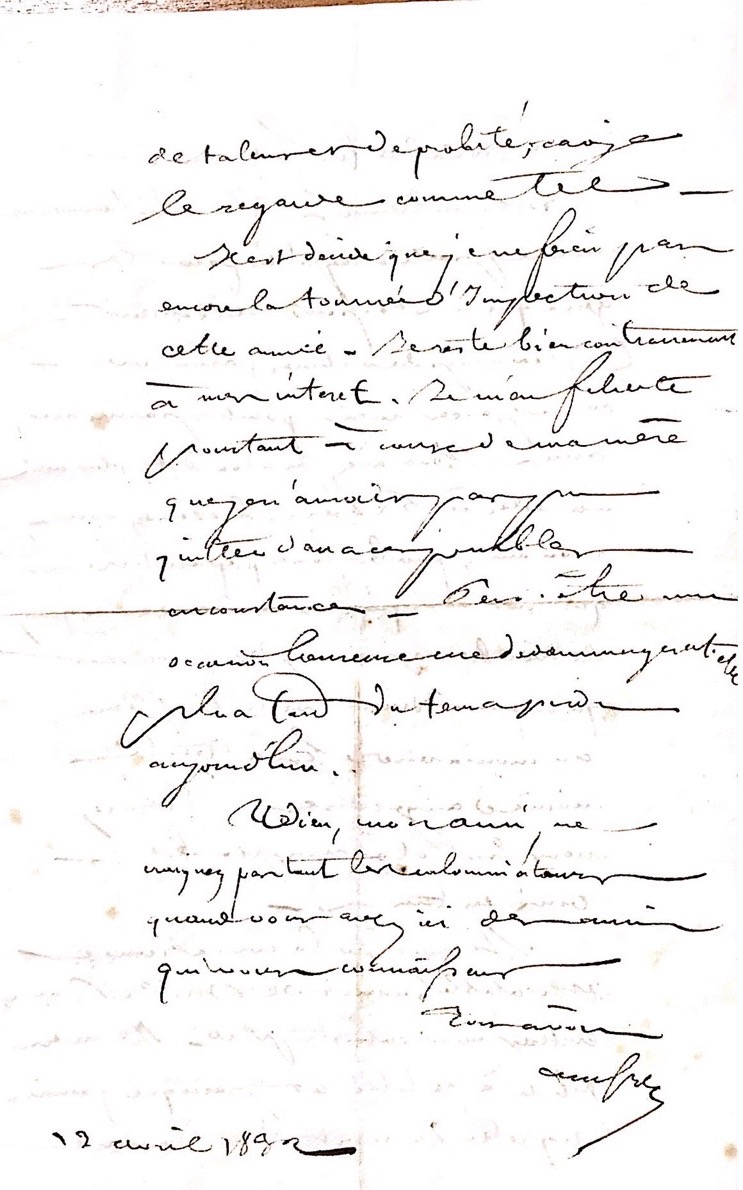 de talens et de probité, car je
le regarde comme tel —
Il est décidé que je ne ferai pas
encore la tournée d'Inspection de
cette année - Je reste bien contrairement
à mon interet. Je m'en felicite
pourtant à cause de ma mère
que je n'aurois pas pu
quitter dans ces penibles
circonstances — Peut-être une
occasion heureuse me dedommagera t-elle
plus tard du tems perdu
aujourd'hui..
Adieu, mon ami, ne
craignez pas tant les calomniateurs
quand vous avez ici des amis
qui vous connaissent
Tout à vous
12 avril 1832